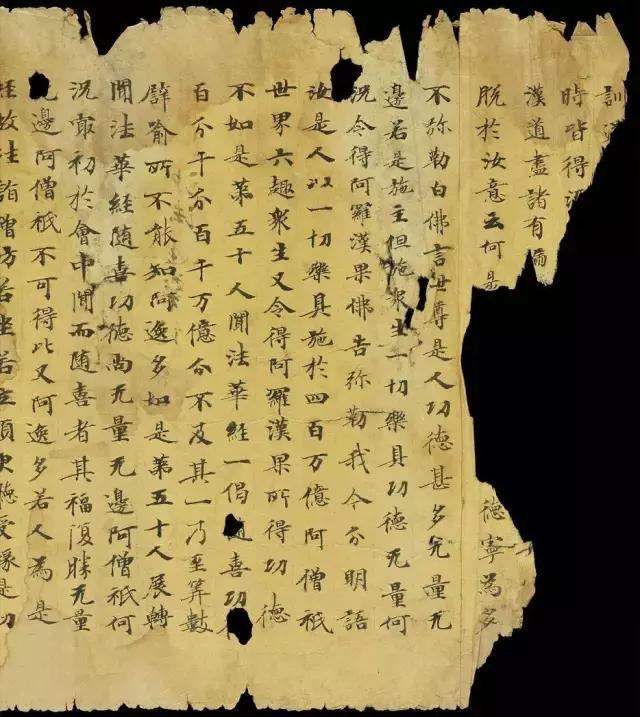 訓
時皆得
漢道盡諸有漏
脫於汝意云何是德寧為多
不弥勒白佛言世尊是人功德甚多无量无
邊若是施主但施衆生一切樂具功德无量何
況令得阿羅漢果佛告弥勒我今分明語
汝是人以一切樂具施於四百万億阿僧祇
世界六趣衆生又令得阿羅漢果所得功德
不如是第五十人聞法華經一偈喜功
百分千分百千万億分不及其一乃至筭數
譬喻所不能知阿逸多如是第五十人展轉
聞法華經隨喜功德尚无量无邊阿僧祇何
況最初於會中聞而隨喜者其福復勝无量
邊阿僧祇不可得比又阿逸多若人為是
經故往詣僧坊若坐若立須臾聽受緣是功